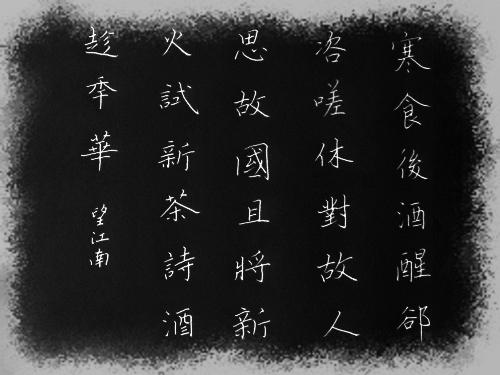 寒食後酒醒卻
咨嗟休對故人
思故國且將新
火試新茶詩酒
趁年華
望江南